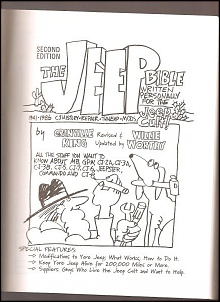 SECOND
EDITION
THE
JEEP
BIBLE
WRITTEN
PERSONALLY
FOR THE
JEEP
CULT!
1941-1986
by
GRANVILLE
KING
Revised &
Updated by
WILLIE
WORTHY
ALL THE STUFF YOU WANT TO
KNOW ABOUT MB, GPW, CJ-2A, CJ-3A,
CJ-3B, CJ-5, CJ-7, CJ-6, JEEPSTER,
COMMANDO AND CJ-8
SPECIAL FEATURES:
Modifications to Yore Jeep: What Works; How to Do It.
Keep Yore Jeep Alive for 200,000 Miles or More.
Suppliers: Guys Who Live the Jeep Cult and Want to Help.